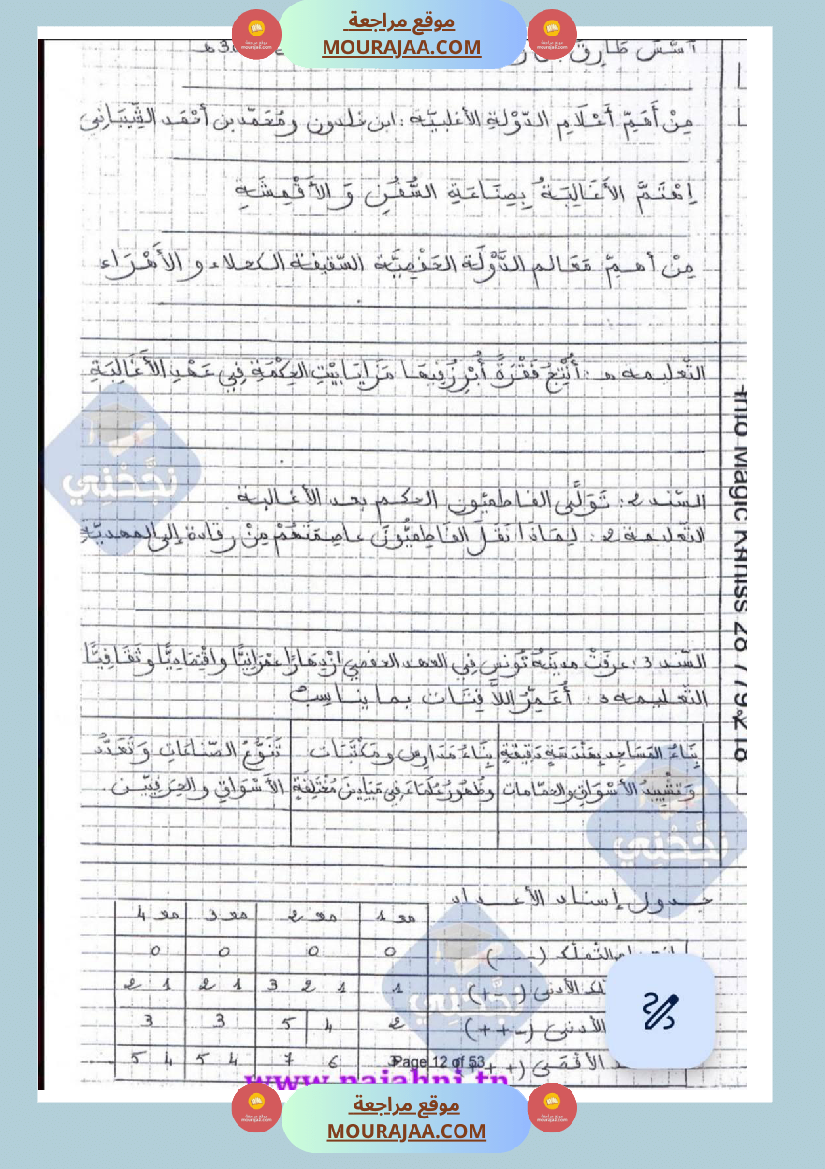 موقع مراجعة
MOURAJAA.COM
أسّس طارق بن
مِنْ أَهَمِّ أَعْلَامِ الدَّوْلَةِ الأغلبيّة : ابن خلدون ومُحَمّد بن أحْمَد الشَّيْبَانِي
اِهْتَمَّ الأَغَالِبَةُ بِصِنَاعَةِ السُّفُنِ وَ الأَقْمِشَةِ
مِنْ أهمِّ مَعَالم الدَّوْلَة الحَفْصِيَّة السّقيفة الكحلاء و الأَهْرَاء
التّعليمة : أُنْتِجُ فَقْرَةً أُبْرِزُ فِيهَا مَزَايَا بَيْتِ الحِكْمَةِ فِي عَهْدِ الأَغَالِبَةِ
السّند 2 : تَوَلَّى الفاطميّون الحكم بعد الأغالبة
التّعليمة 2 : لِمَاذَا نَقَلَ الفَاطِمِيُّونَ عَاصِمَتَهُمْ مِنْ رقادة إلى المهديّة
السّند 3 : عرفَتْ مدينَةُ تُونس فِي العهد الحفصي ازْدِهَارًا عمْرَانِيًّا واقْتِصَادِيًّا وثَقَافِيًّا
التّعليمة 3 : أُعَمِّرُ اللاَّفِتَات بما يناسب
بِنَاءُ المَسَاجِد بِهَنْدَسَةٍ دَقِيقَةٍ وَتَشْيِيدُ الأَسْوَاقِ والحمّامات
بِنَاءُ مَدَارِس ومَكْتَبَات وظُهُورُ عُلَمَاءَ فِي مَيَادِينَ مُخْتَلِفَةٍ
تَنَوُّعُ الصّنَاعَاتِ وَتَعَدُّدُ الأسْوَاقِ والحِرَفِيِّين.
جدول إسناد الأعداد
مع 1 مع 2 مع 3 مع 4
انعدام التّملّك (---) 0 0 0 0
الأدنى (--+) 1 1 2 3 1 2 1 2
الأدنى (-++) 2 4 5 3 3
الأقصى (+++) 3 6 7 4 5 4 5
Page 12 of 53
www.najahni.tn
نجّحني
نجّحني
نجّحني
Info Magic Kahiss 28 779 218
موقع مراجعة
MOURAJAA.COM